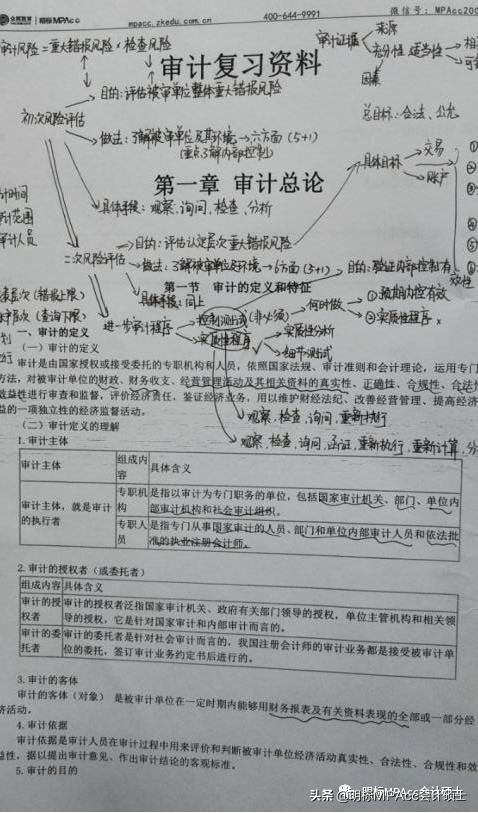 众凯教育 明标MPAcc mpacc.zkedu.com.cn 400-644-9991 微信号：MPAcc200
审计风险＝重大错报风险×检查风险
审计证据 来源
充分性 适当性
因素
审计复习资料
目的：评估被审单位整体重大错报风险
初次风险评估
总目标：合法、公允
做法：了解被审单位及其环境→六方面(5+1)
(重点了解内部控制)
具体目标 交易
账户
第一章 审计总论
具体手段：观察、询问、检查、分析
计时间
计范围
审计人员
目的：评估认定层次重大错报风险
二次风险评估
做法：了解被审单位及环境→6方面(5+1)
目的：验证内部控制有效性
第一节 审计的定义和特征
具体手段：同上
层次（错报上限）
层次（查询下限）
进一步审计程序
控制测试(非必须) 何时做 ①预期内控有效
②实质性程序×
实质性程序 实质性分析
细节测试
一、审计的定义
（一）审计的定义
审计是由国家授权或接受委托的专职机构和人员，依照国家法规、审计准则和会计理论，运用专门
方法，对被审单位的财政、财务收支、经营管理活动及其相关资料的真实性、正确性、合规性、合法性
效益性进行审查和监督，评价经济责任，鉴证经济业务，用以维护财经法纪、改善经营管理、提高经济
益的一项独立性的经济监督活动。
观察、检查、询问、重新执行
（二）审计定义的理解
观察、检查、询问、函证、重新执行、重新计算、分
1.审计主体
审计主体 组成内容 具体含义
审计主体，就是审计的执行者 专职机构 是指以审计为专门职务的单位，包括国家审计机关、部门、单位内
部审计机构和社会审计组织。
专职人员 是指专门从事国家审计的人员、部门和单位内部审计人员和依法批
准的执业注册会计师。
2.审计的授权者（或委托者）
组成内容 具体含义
审计的授权者 审计的授权者泛指国家审计机关、政府有关部门领导的授权，单位主管机构和相关领
导的授权，它是针对国家审计和内部审计而言的。
审计的委托者 审计的委托者是针对社会审计而言的，我国注册会计师的审计业务都是接受被审计单
位的委托，签订审计业务约定书后进行的。
3.审计的客体
审计的客体（对象） 是被审计单位在一定时期内能够用财务报表及有关资料表现的全部或一部分经
济活动。
4.审计依据
审计依据是审计人员在审计过程中用来评价和判断被审计单位经济活动真实性、合法性、合规性和效
益性，据以提出审计意见、作出审计结论的客观标准。
5.审计的目的
明标MPAcc会计硕士
头条 @明标MPAcc会计硕士